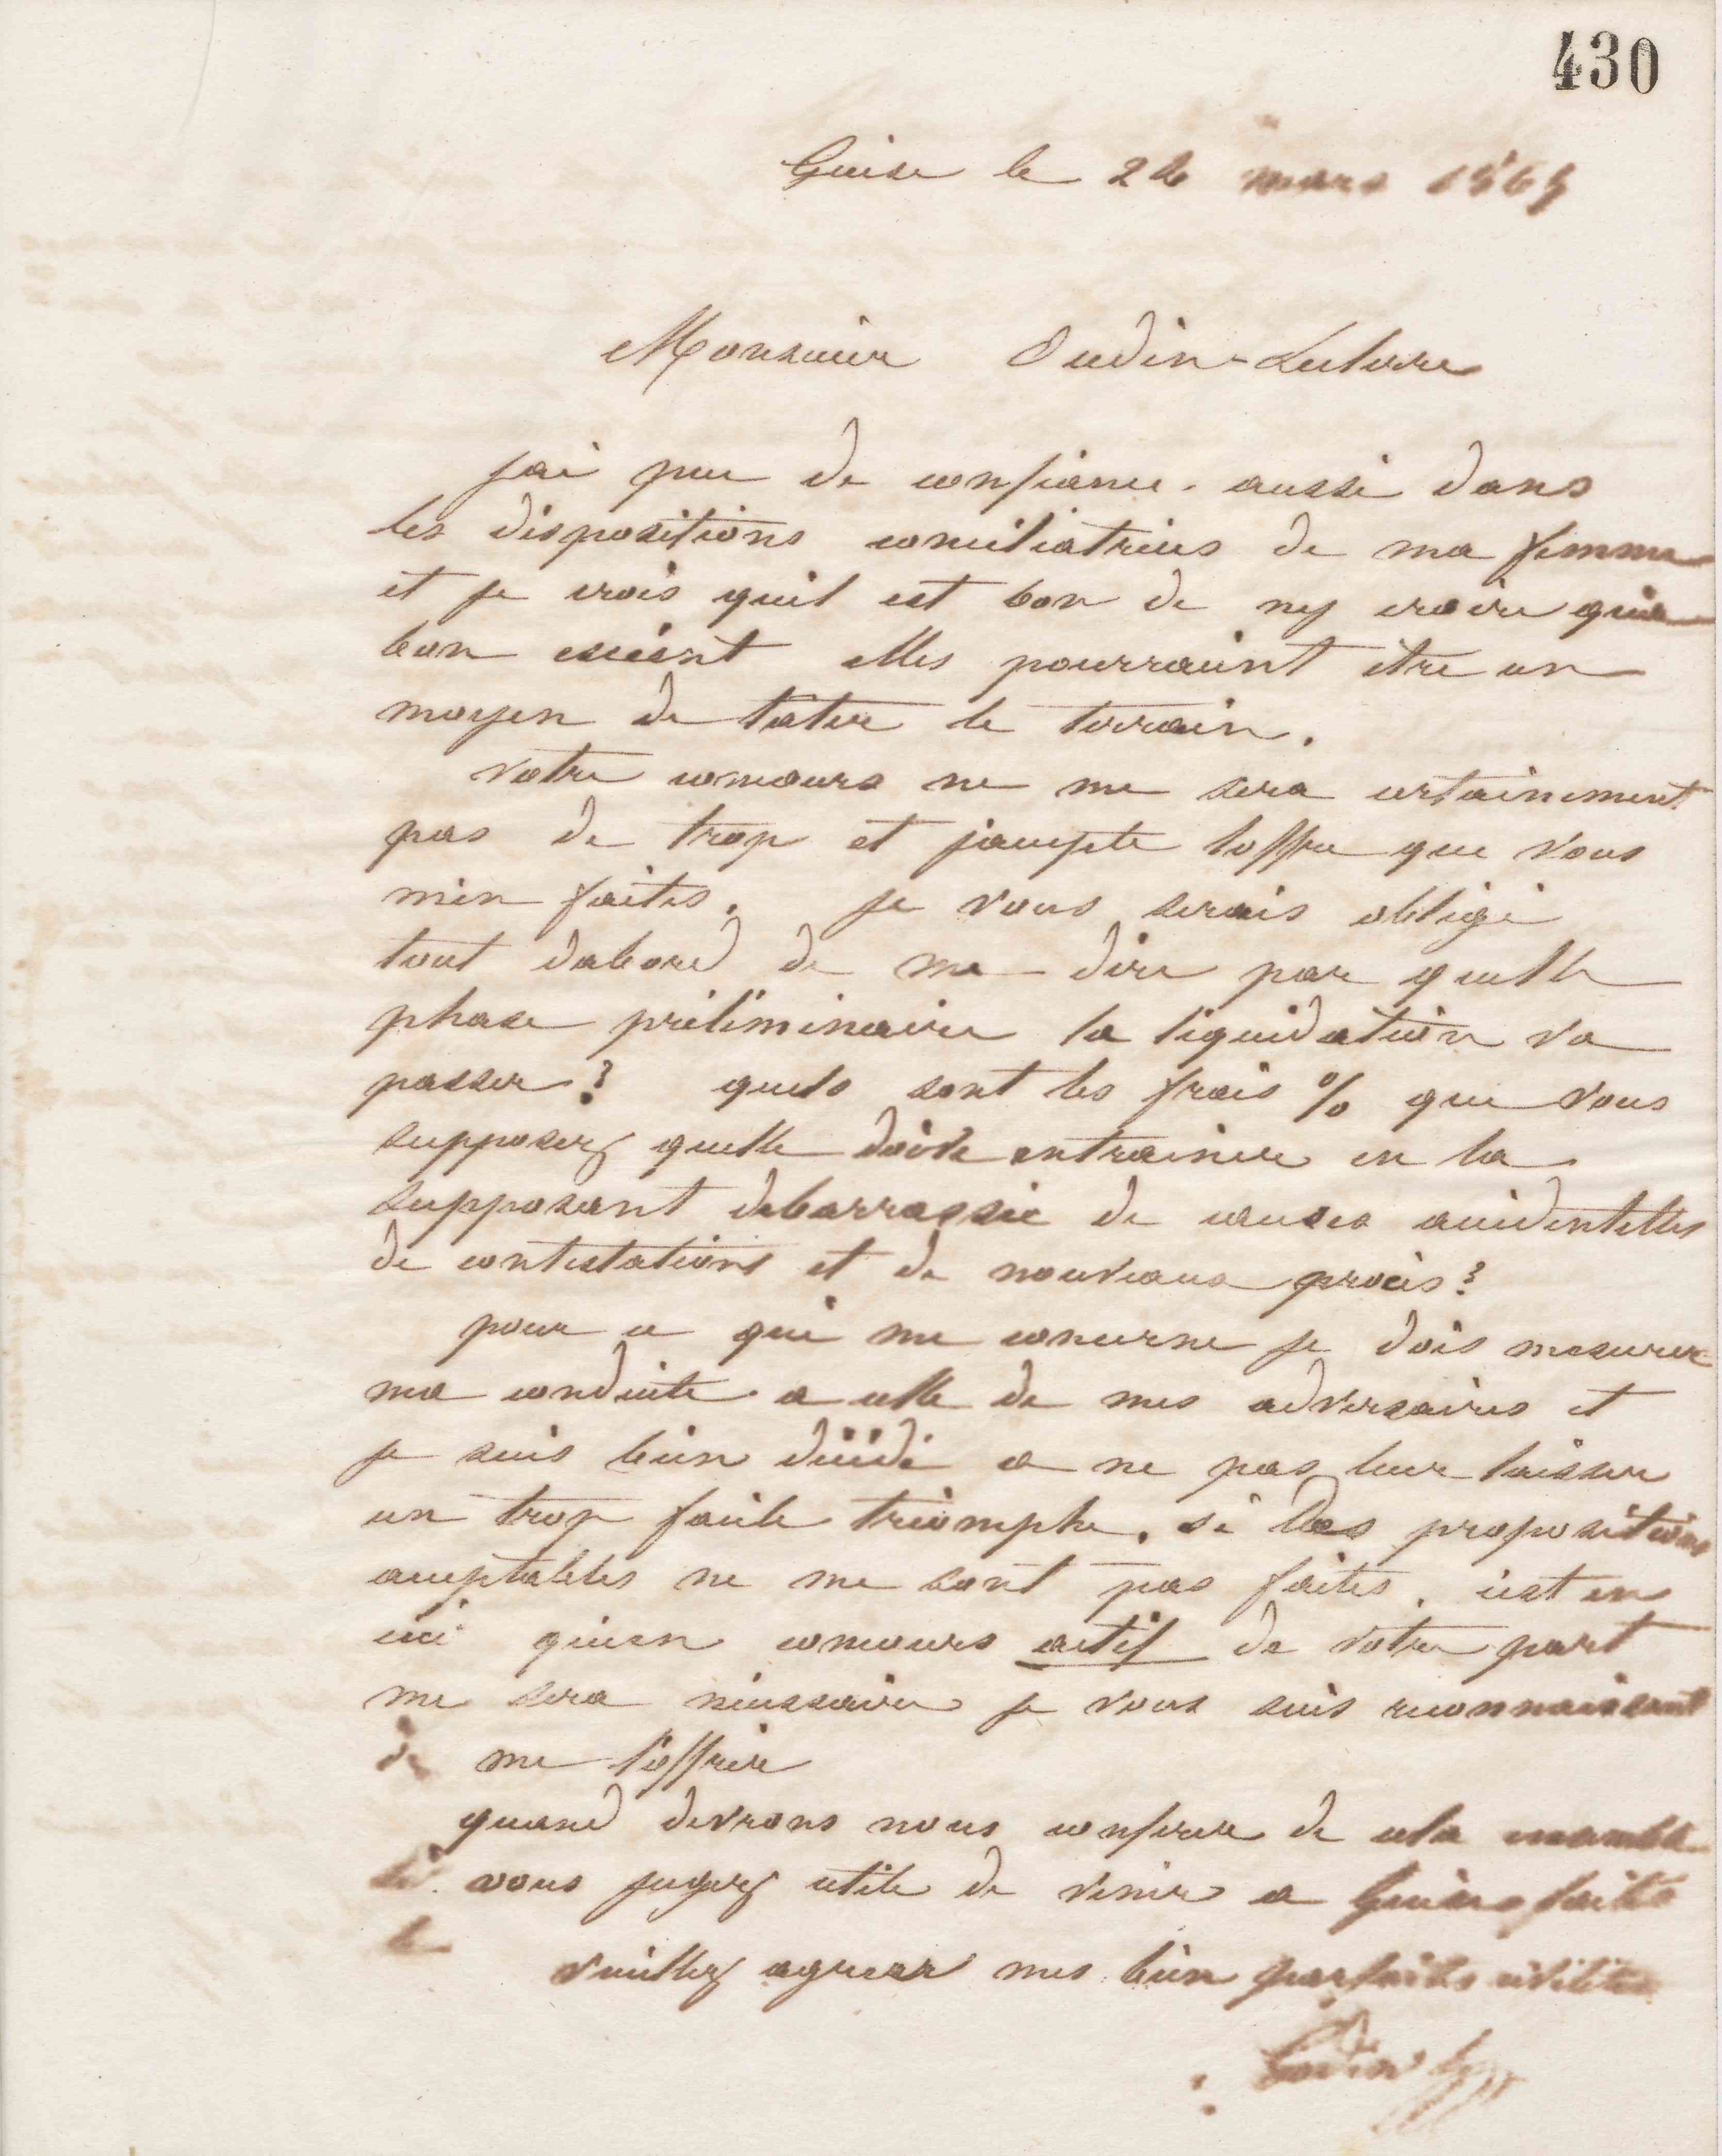 430
Guise le 22 mars 1865
Monsieur Oudin-Leclere
jai peu de confiance aussi dans
les dispositions conciliatrices de ma femme
et je crois quil est bon de ny croire qua
bon escient elles pourraient être un
moyen de tater le terrain.
votre concours ne me sera certainement
pas de trop et jaccepte loffre que vous
men faites. je vous serais obligé
tout dabord de me dire par quelle
phase préliminaire la liquidation va
passer? quels sont les frais % que vous
supposez quelle doive entrainer en la
supposant debarrassée de causes accidentelles
de contestations et de nouveaux procès?
pour ce qui me concerne je dois mesurer
ma conduite a celle de mes adversaires et
je suis bien décidé a ne pas leur laisser
un trop facile triomphe. si des propositions
acceptables ne me sont pas faites. cest en
ceci quun concours actif de votre part
me sera nécessaire je vous suis reconnaissant
de me l'offrir
quand devrons nous conferer de cela ensemble
si vous jugez utile de venir a Guise faites
le
veuillez agreer mes bien parfaites civilités
Godin